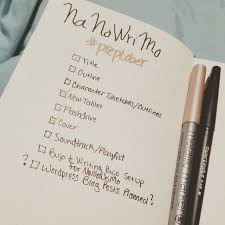 NaNoWriMo
#preptober
Title
Outline
Character Sketches/Outlines
New Tablet
Flashdrive
Cover
Soundtrack/Playlist
& Writing Set Up
for NaNoWriMo
? Wordpress Blog Posts Planned?